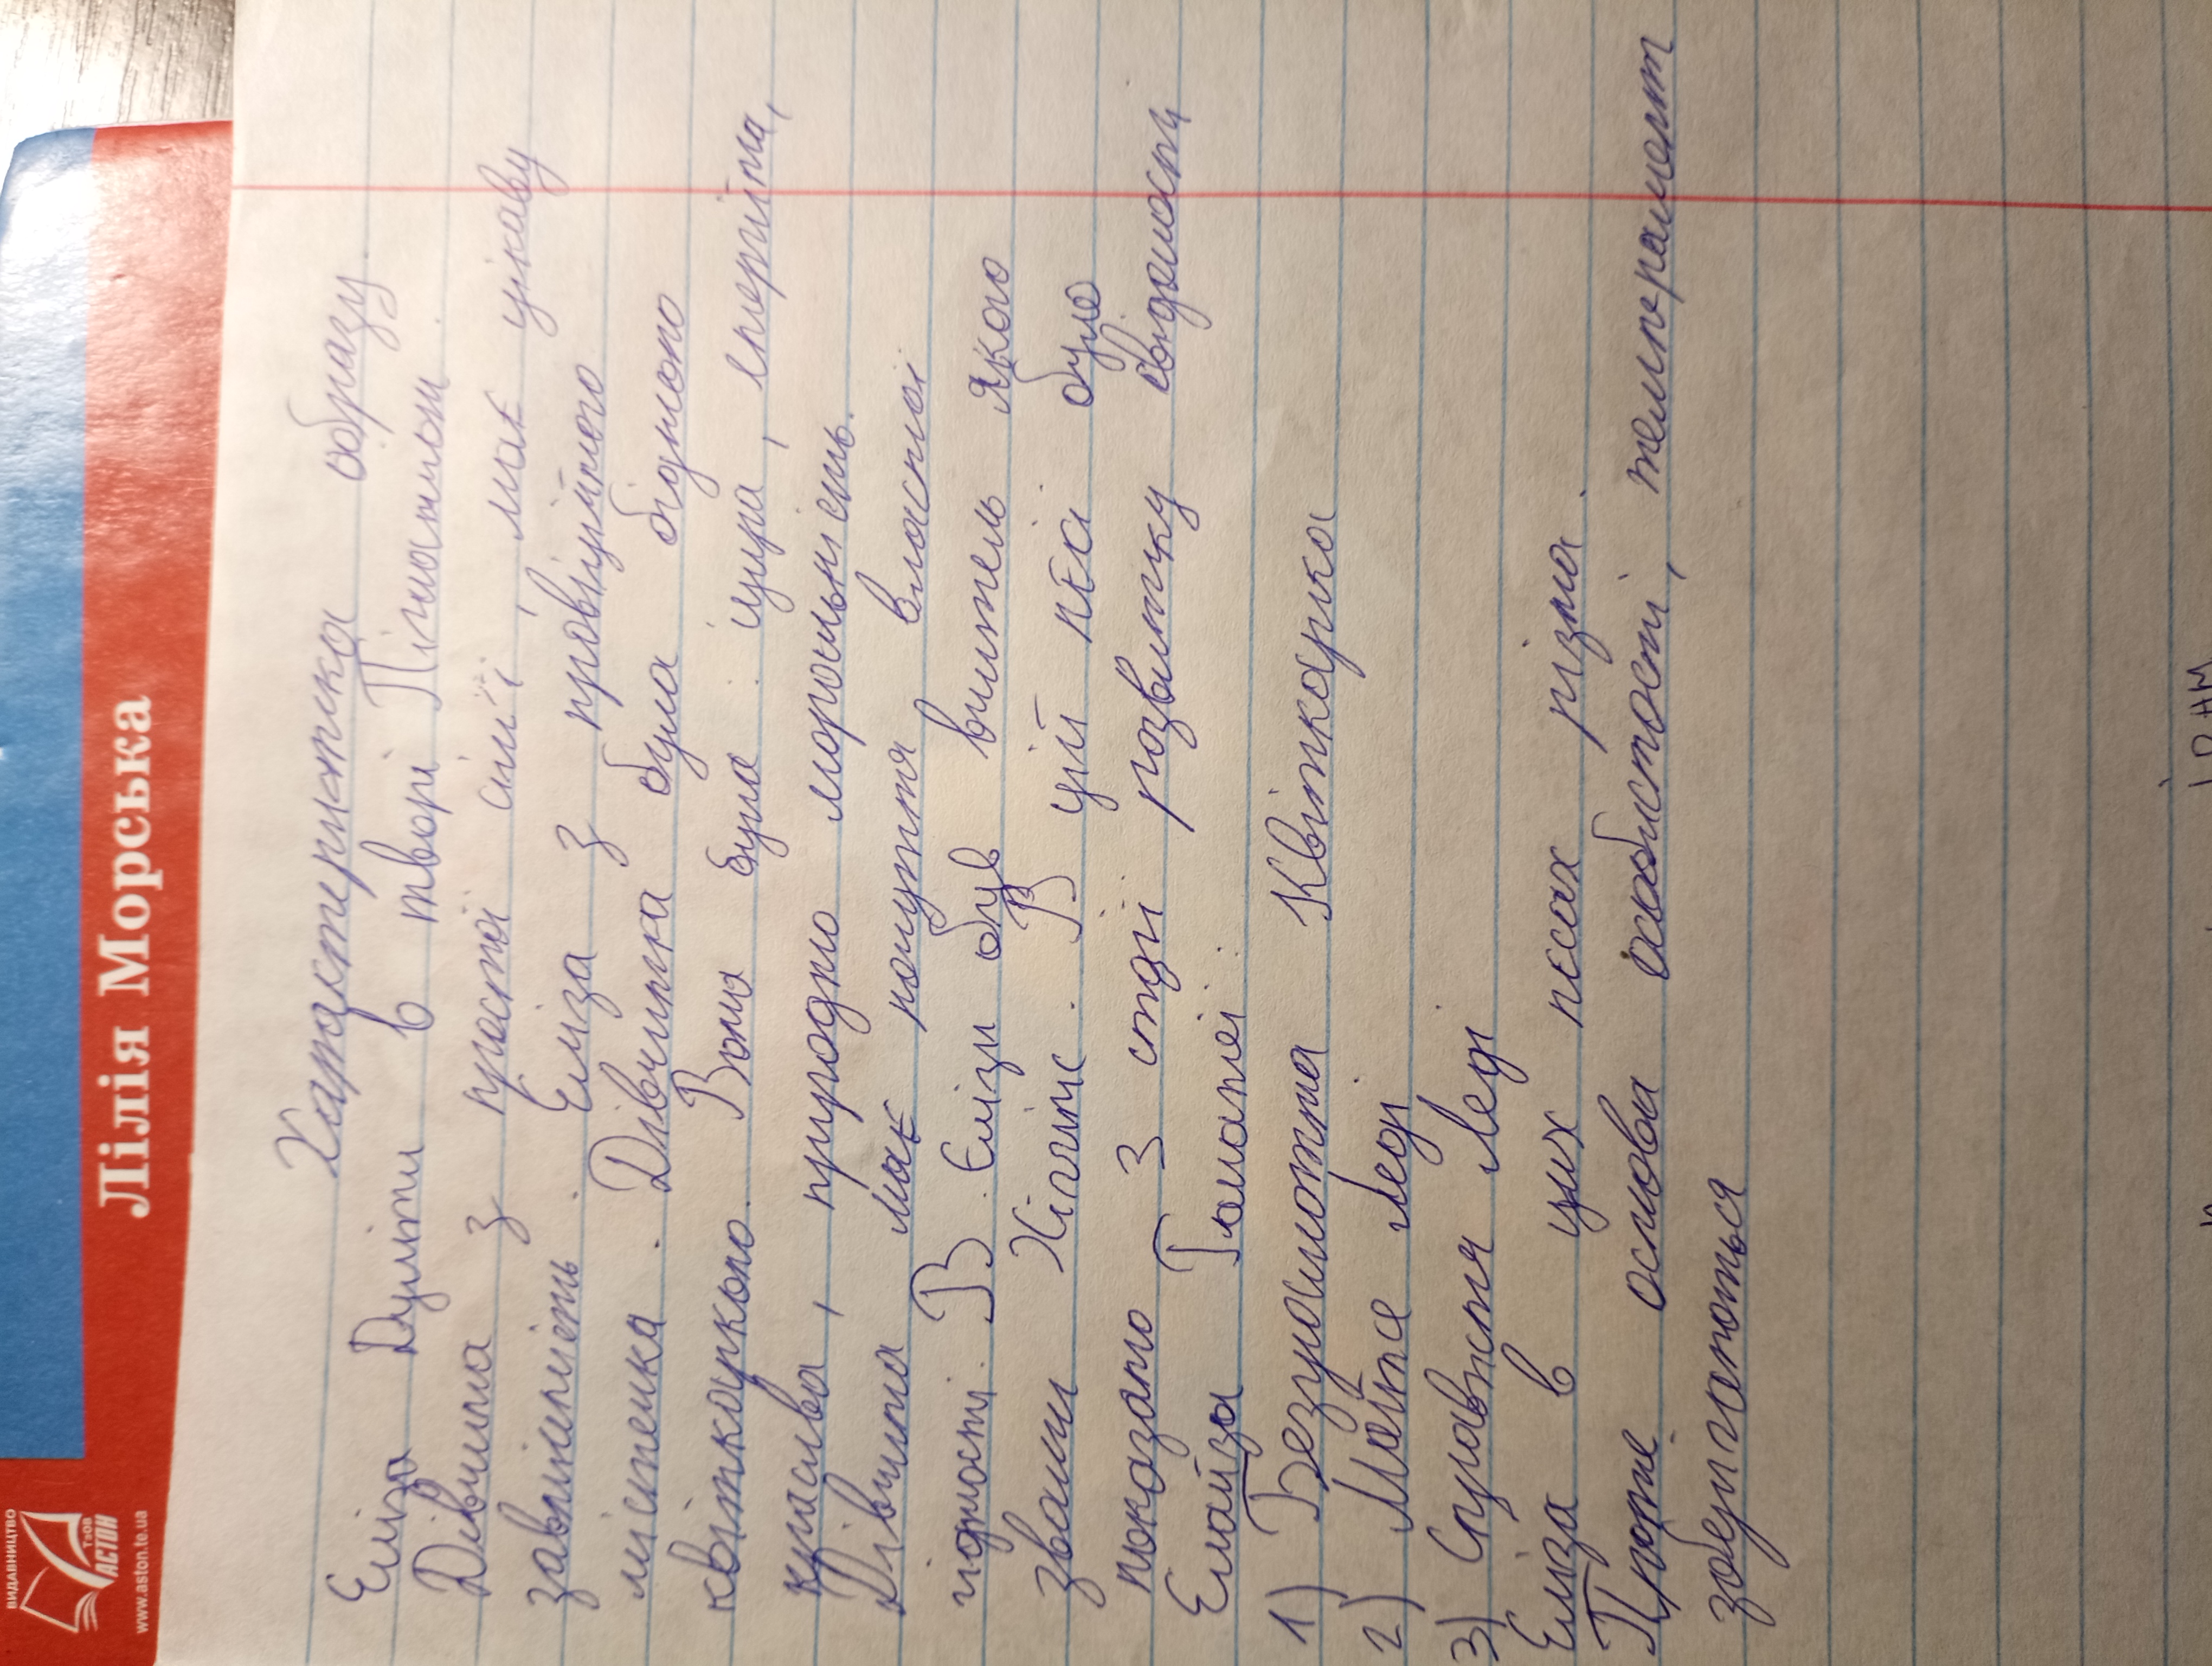 Лілія Морська
ВИДАВНИЦТВО
ТЗОВ
АСТОН
www.aston.te.ua
Характеристика образу.
Еліза Дулітл в творі Пігмаліон.
Дівчина з простої сім'ї, має цікаву
зовнішність. Еліза з провінційного
містечка. Дівчинка була бідною
квіткаркою. Вона була: щира, енергійна,
красива, природно моральність.
Дівчина має почуття власної
гідності. В Елізи був вчитель якого
звали Хіггінс. В цій пєсі було
показано 3 стдії розвитку свідомості
Елайза Гоманеі:
1) Безграмотна Квіткарка
2) Майже леді
3) Справжня Леді
Еліза в цих пєсах різна.
Проте основа особистості, темперамент
зберігаються